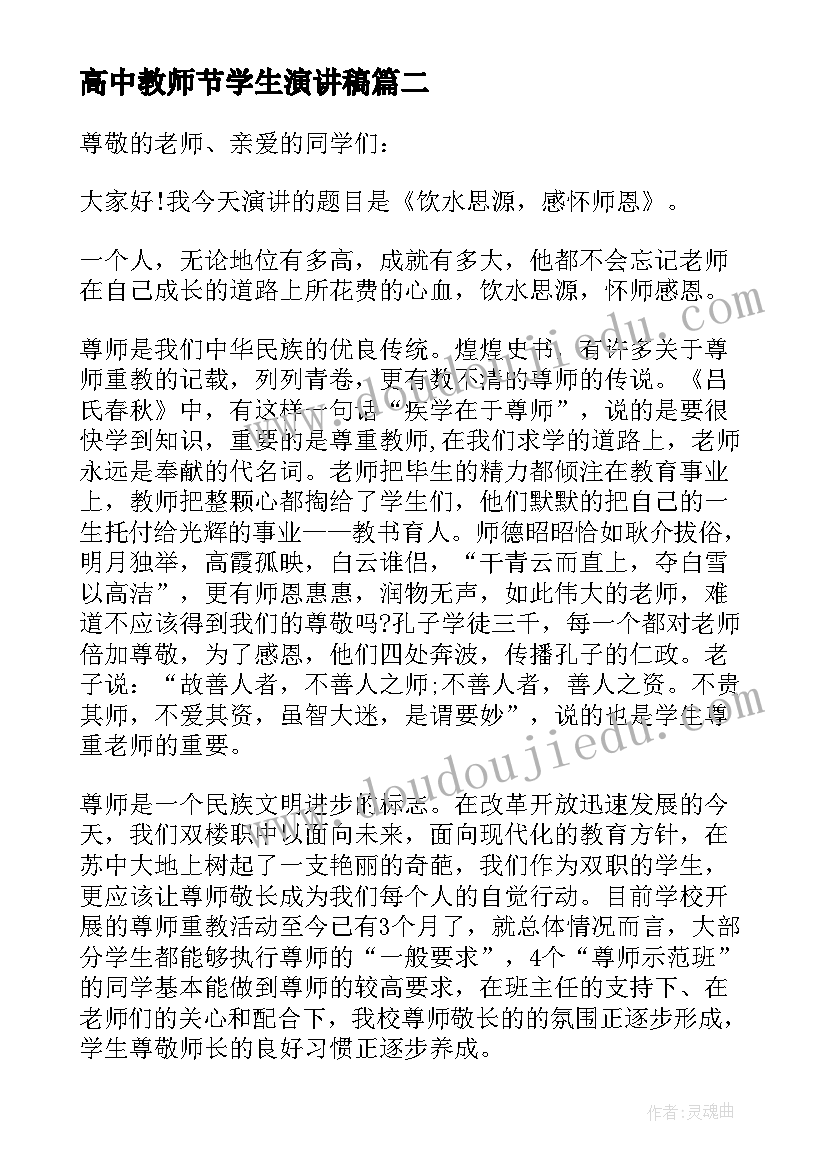 高中教师节学生演讲稿篇二
尊敬的老师、亲爱的同学们：
大家好!我今天演讲的题目是《饮水思源，感怀师恩》。
一个人，无论地位有多高，成就有多大，他都不会忘记老师
在自己成长的道路上所花费的心血，饮水思源，怀师感恩。
尊师是我们中华民族的优良传统。煌煌史书，有许多关于尊
师重教的记载，列列青卷，更有数不清的尊师的传说。《吕
氏春秋》中，有这样一句话“疾学在于尊师”，说的是要很
快学到知识，重要的是尊重教师,在我们求学的道路上，老师
永远是奉献的代名词。老师把毕生的精力都倾注在教育事业
上，教师把整颗心都掏给了学生们，他们默默的把自己的一
生托付给光辉的事业——教书育人。师德昭昭恰如耿介拔俗，
明月独举，高霞孤映，白云谁侣，“干青云而直上，夺白雪
以高洁”，更有师恩惠惠，润物无声，如此伟大的老师，难
道不应该得到我们的尊敬吗?孔子学徒三千，每一个都对老师
倍加尊敬，为了感恩，他们四处奔波，传播孔子的仁政。老
子说：“故善人者，不善人之师;不善人者，善人之资。不贵
其师，不爱其资，虽智大迷，是谓要妙”，说的也是学生尊
重老师的重要。
尊师是一个民族文明进步的标志。在改革开放迅速发展的今
天，我们双楼职中以面向未来，面向现代化的教育方针，在
苏中大地上树起了一支艳丽的奇葩，我们作为双职的学生，
更应该让尊师敬长成为我们每个人的自觉行动。目前学校开
展的尊师重教活动至今已有3个月了，就总体情况而言，大部
分学生都能够执行尊师的“一般要求”，4个“尊师示范班”
的同学基本能做到尊师的较高要求，在班主任的支持下、在
老师们的关心和配合下，我校尊师敬长的的氛围正逐步形成，
学生尊敬师长的良好习惯正逐步养成。
www.doudoujiedu.com
www.doudoujiedu.com
作者:灵魂曲